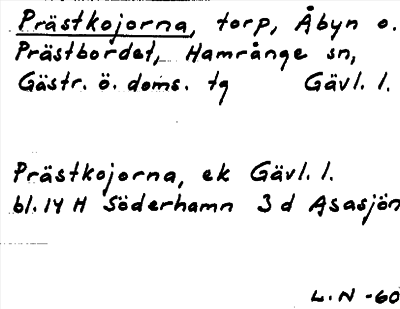 Prästkojorna, torp, Åbyn o.
Prästbordet, Hamrånge sn,
Gästr. ö. doms. tg Gävl. l.
Prästkojorna, ek Gävl. l.
bl. 14 H Söderhamn 3 d Asasjön
L.N -60